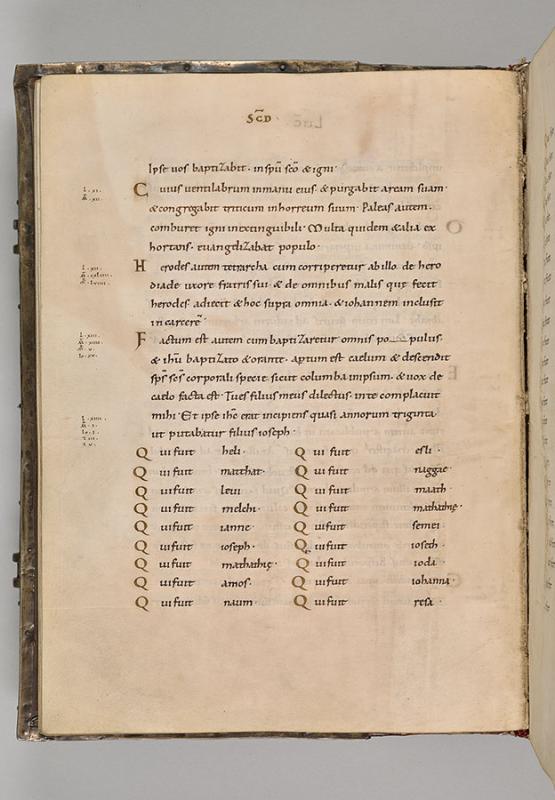 SCD
Ipse uos baptizabit · in spū scō & igni ·
Cuius uentilabrum in manu eius · & purgabit aream suam ·
& congregabit triticum in horreum suum · Paleas autem ·
comburet igni inextinguibili · Multa quidem & alia ex
hortans · euangelizabat populo ·
Herodes autem tetrarcha cum corriperetur ab illo de hero
diade uxore fratris sui · & de omnibus malis quę fecit
herodes adiecit & hoc supra omnia · & iohannem inclusit
in carcerē ·
Factum est autem cum baptizaretur omnis po pulus ·
& ihū baptizato & orante · apertum est caelum & descendit
sp̄s sc̄s corporali specie sicut columba in ipsum · & uox de
caelo facta est · Tu es filius meus dilectus · in te complacuit
mihi · Et ipse ihc̄ erat incipiens quasi annorum triginta
ut putabatur filius ioseph ·
Qui fuit heli · Qui fuit esli ·
Qui fuit matthat · Qui fuit naggae ·
Qui fuit leui Qui fuit maath ·
Qui fuit melchi · Qui fuit mathathię ·
Qui fuit ianne · Qui fuit semei
Qui fuit ioseph · Qui fuit ioseth ·
Qui fuit mathathię · Qui fuit ioda ·
Qui fuit amos · Qui fuit iohanna ·
Qui fuit naum · Qui fuit resa ·